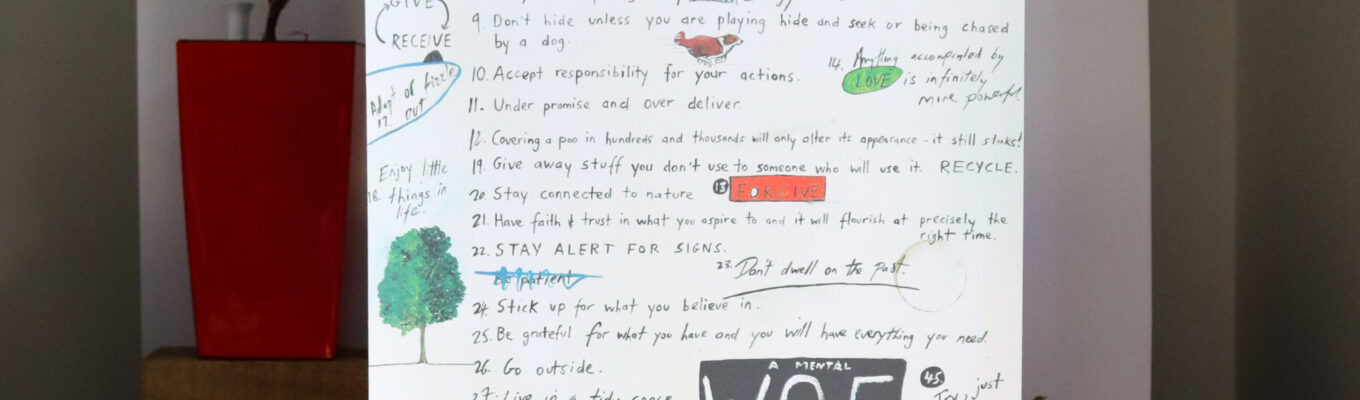 GIVE
RECEIVE
9. Don't hide unless you are playing hide and seek or being chased
by a dog.
10. Accept responsibility for your actions.
14. Anything accompanied by
LOVE is infinitely
more powerful.
Adapt or fizzle
17. out
11. Under promise and over deliver.
12. Covering a poo in hundreds and thousands will only alter its appearance - it still stinks!
Enjoy little
18. things in
life.
19. Give away stuff you don't use to someone who will use it. RECYCLE.
20. Stay connected to nature
13 FORGIVE
21. Have faith & trust in what you aspire to and it will flourish at precisely the
right time.
22. STAY ALERT FOR SIGNS.
Be patient
23. Don't dwell on the past.
24. Stick up for what you believe in.
25. Be grateful for what you have and you will have everything you need.
26. Go outside.
A MENTAL
45.
Try, just
27. Live in a tidy space